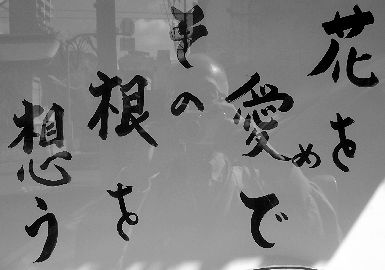 花を
愛めで
その
根を
想う